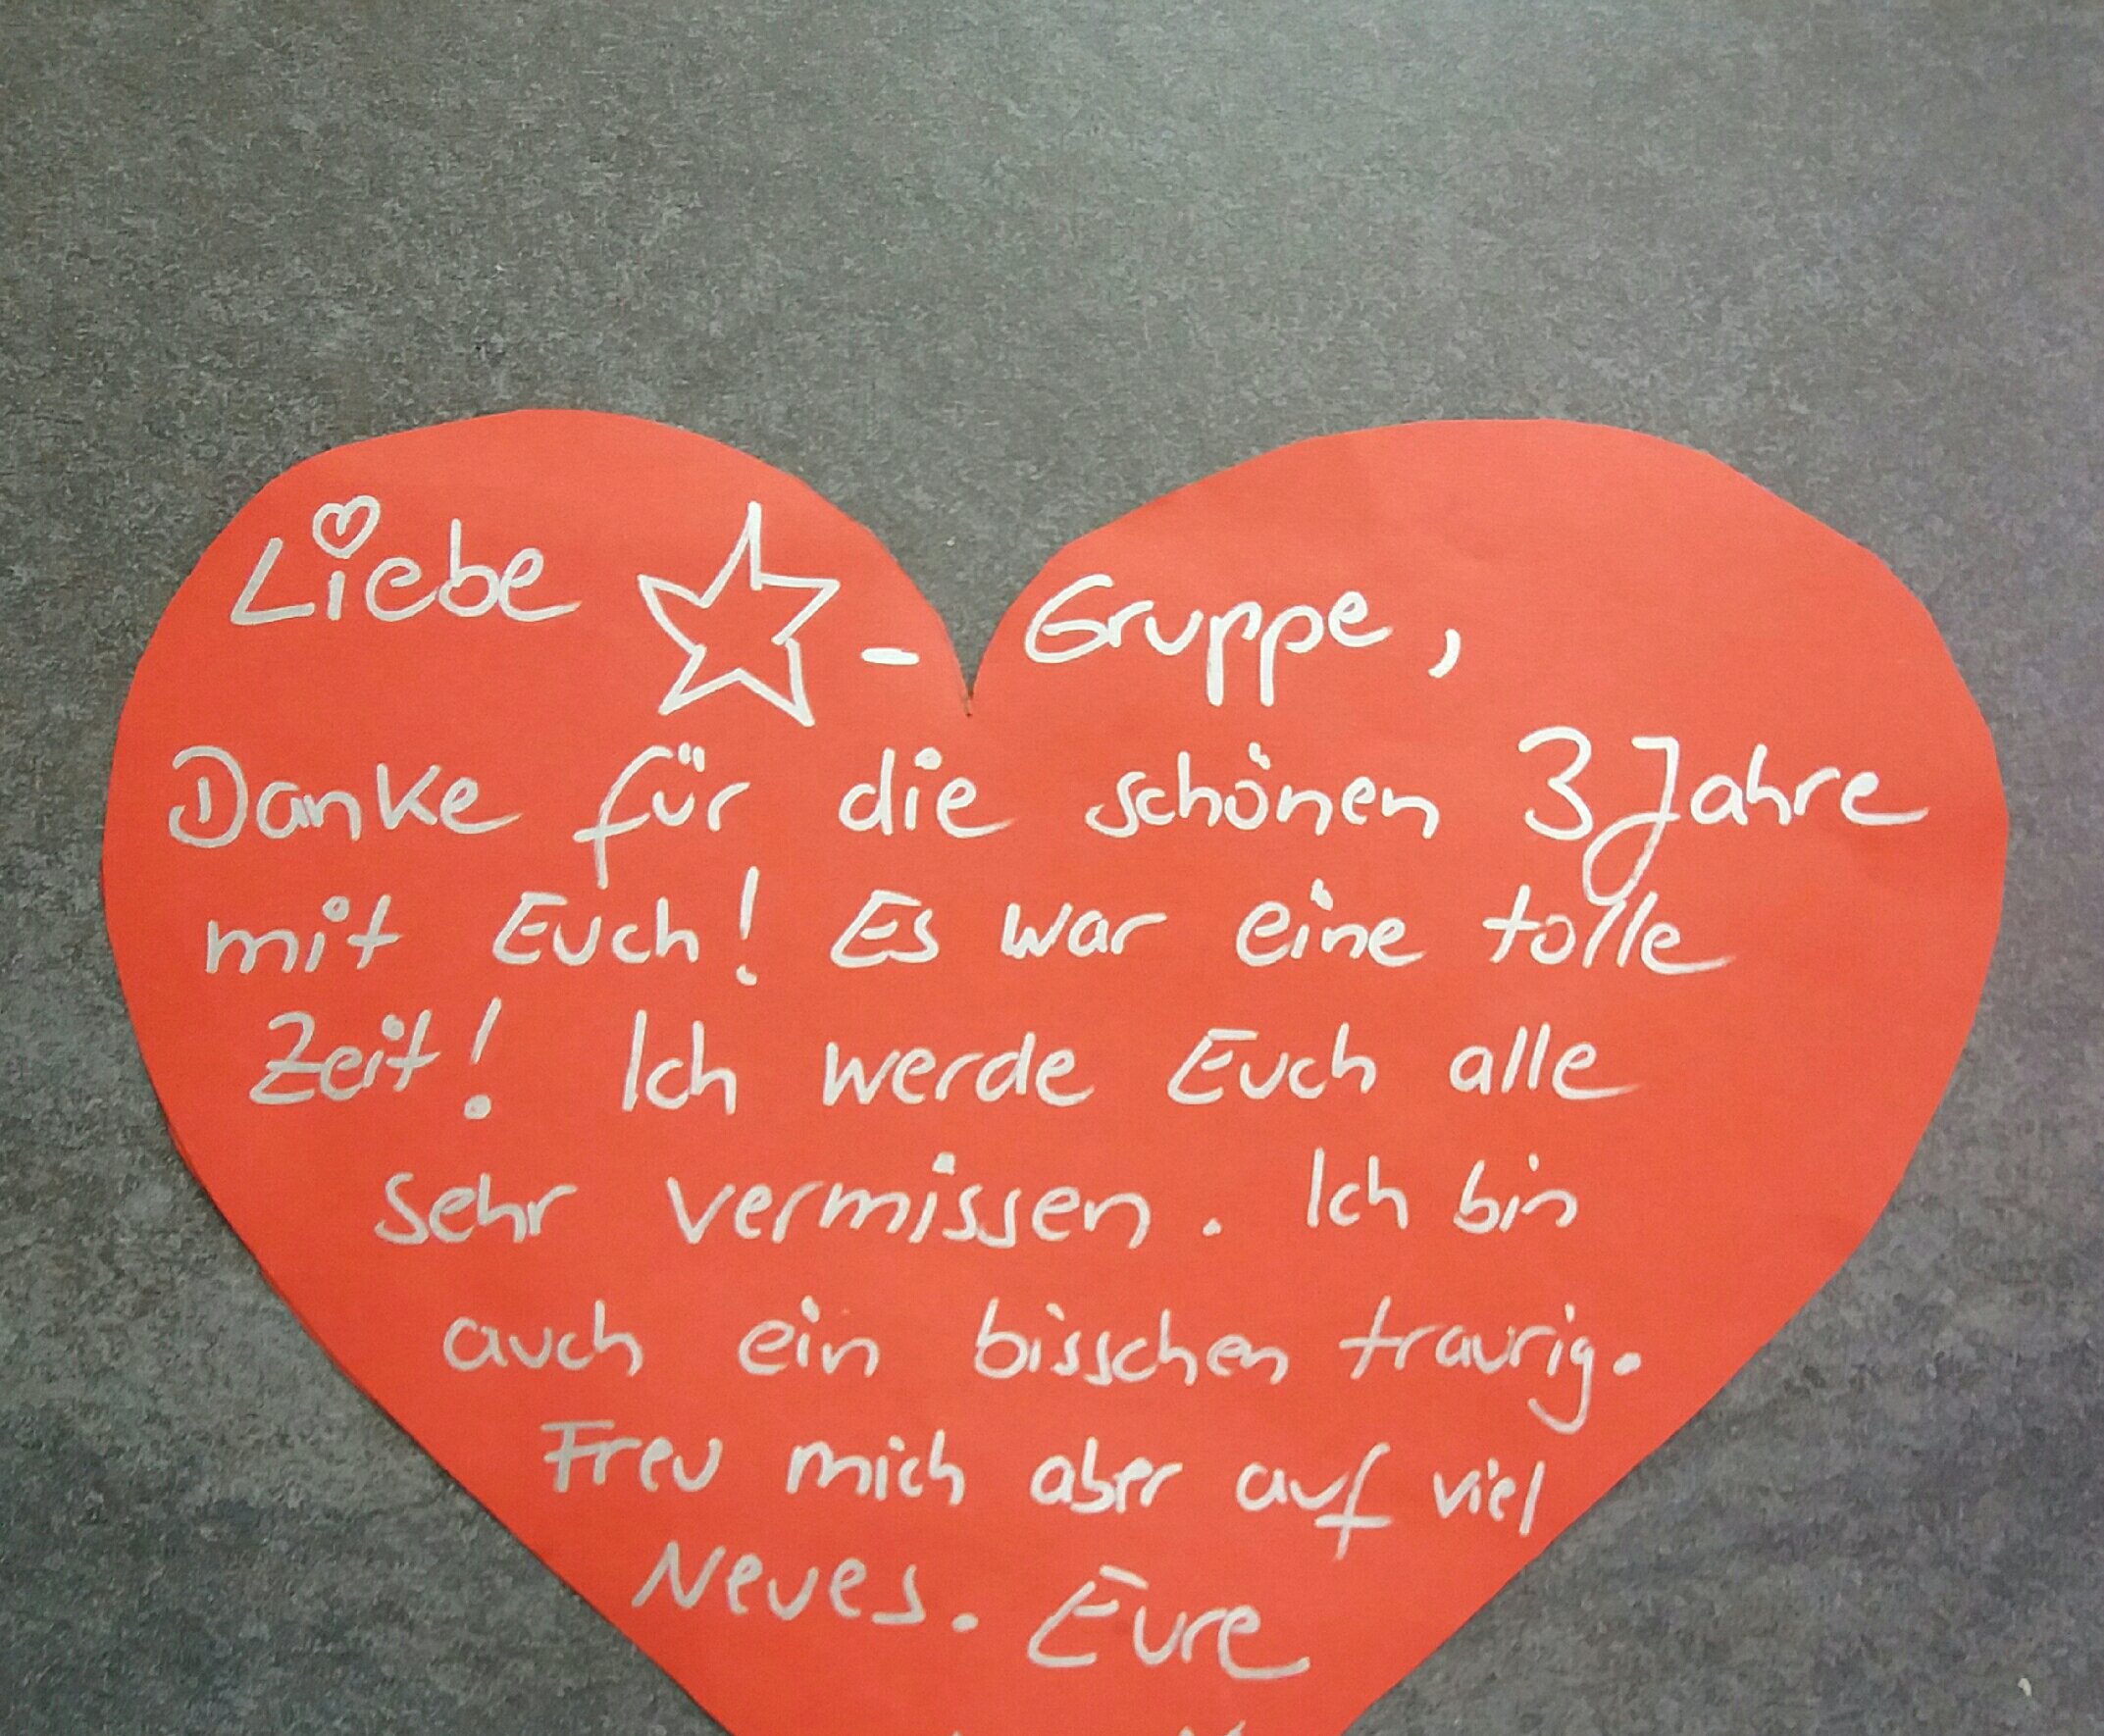 Liebe ☆ - Gruppe,
Danke für die schönen 3 Jahre
mit Euch! Es war eine tolle
Zeit! Ich werde Euch alle
sehr vermissen. Ich bin
auch ein bisschen traurig.
Freu mich aber auf viel
Neues. Eure